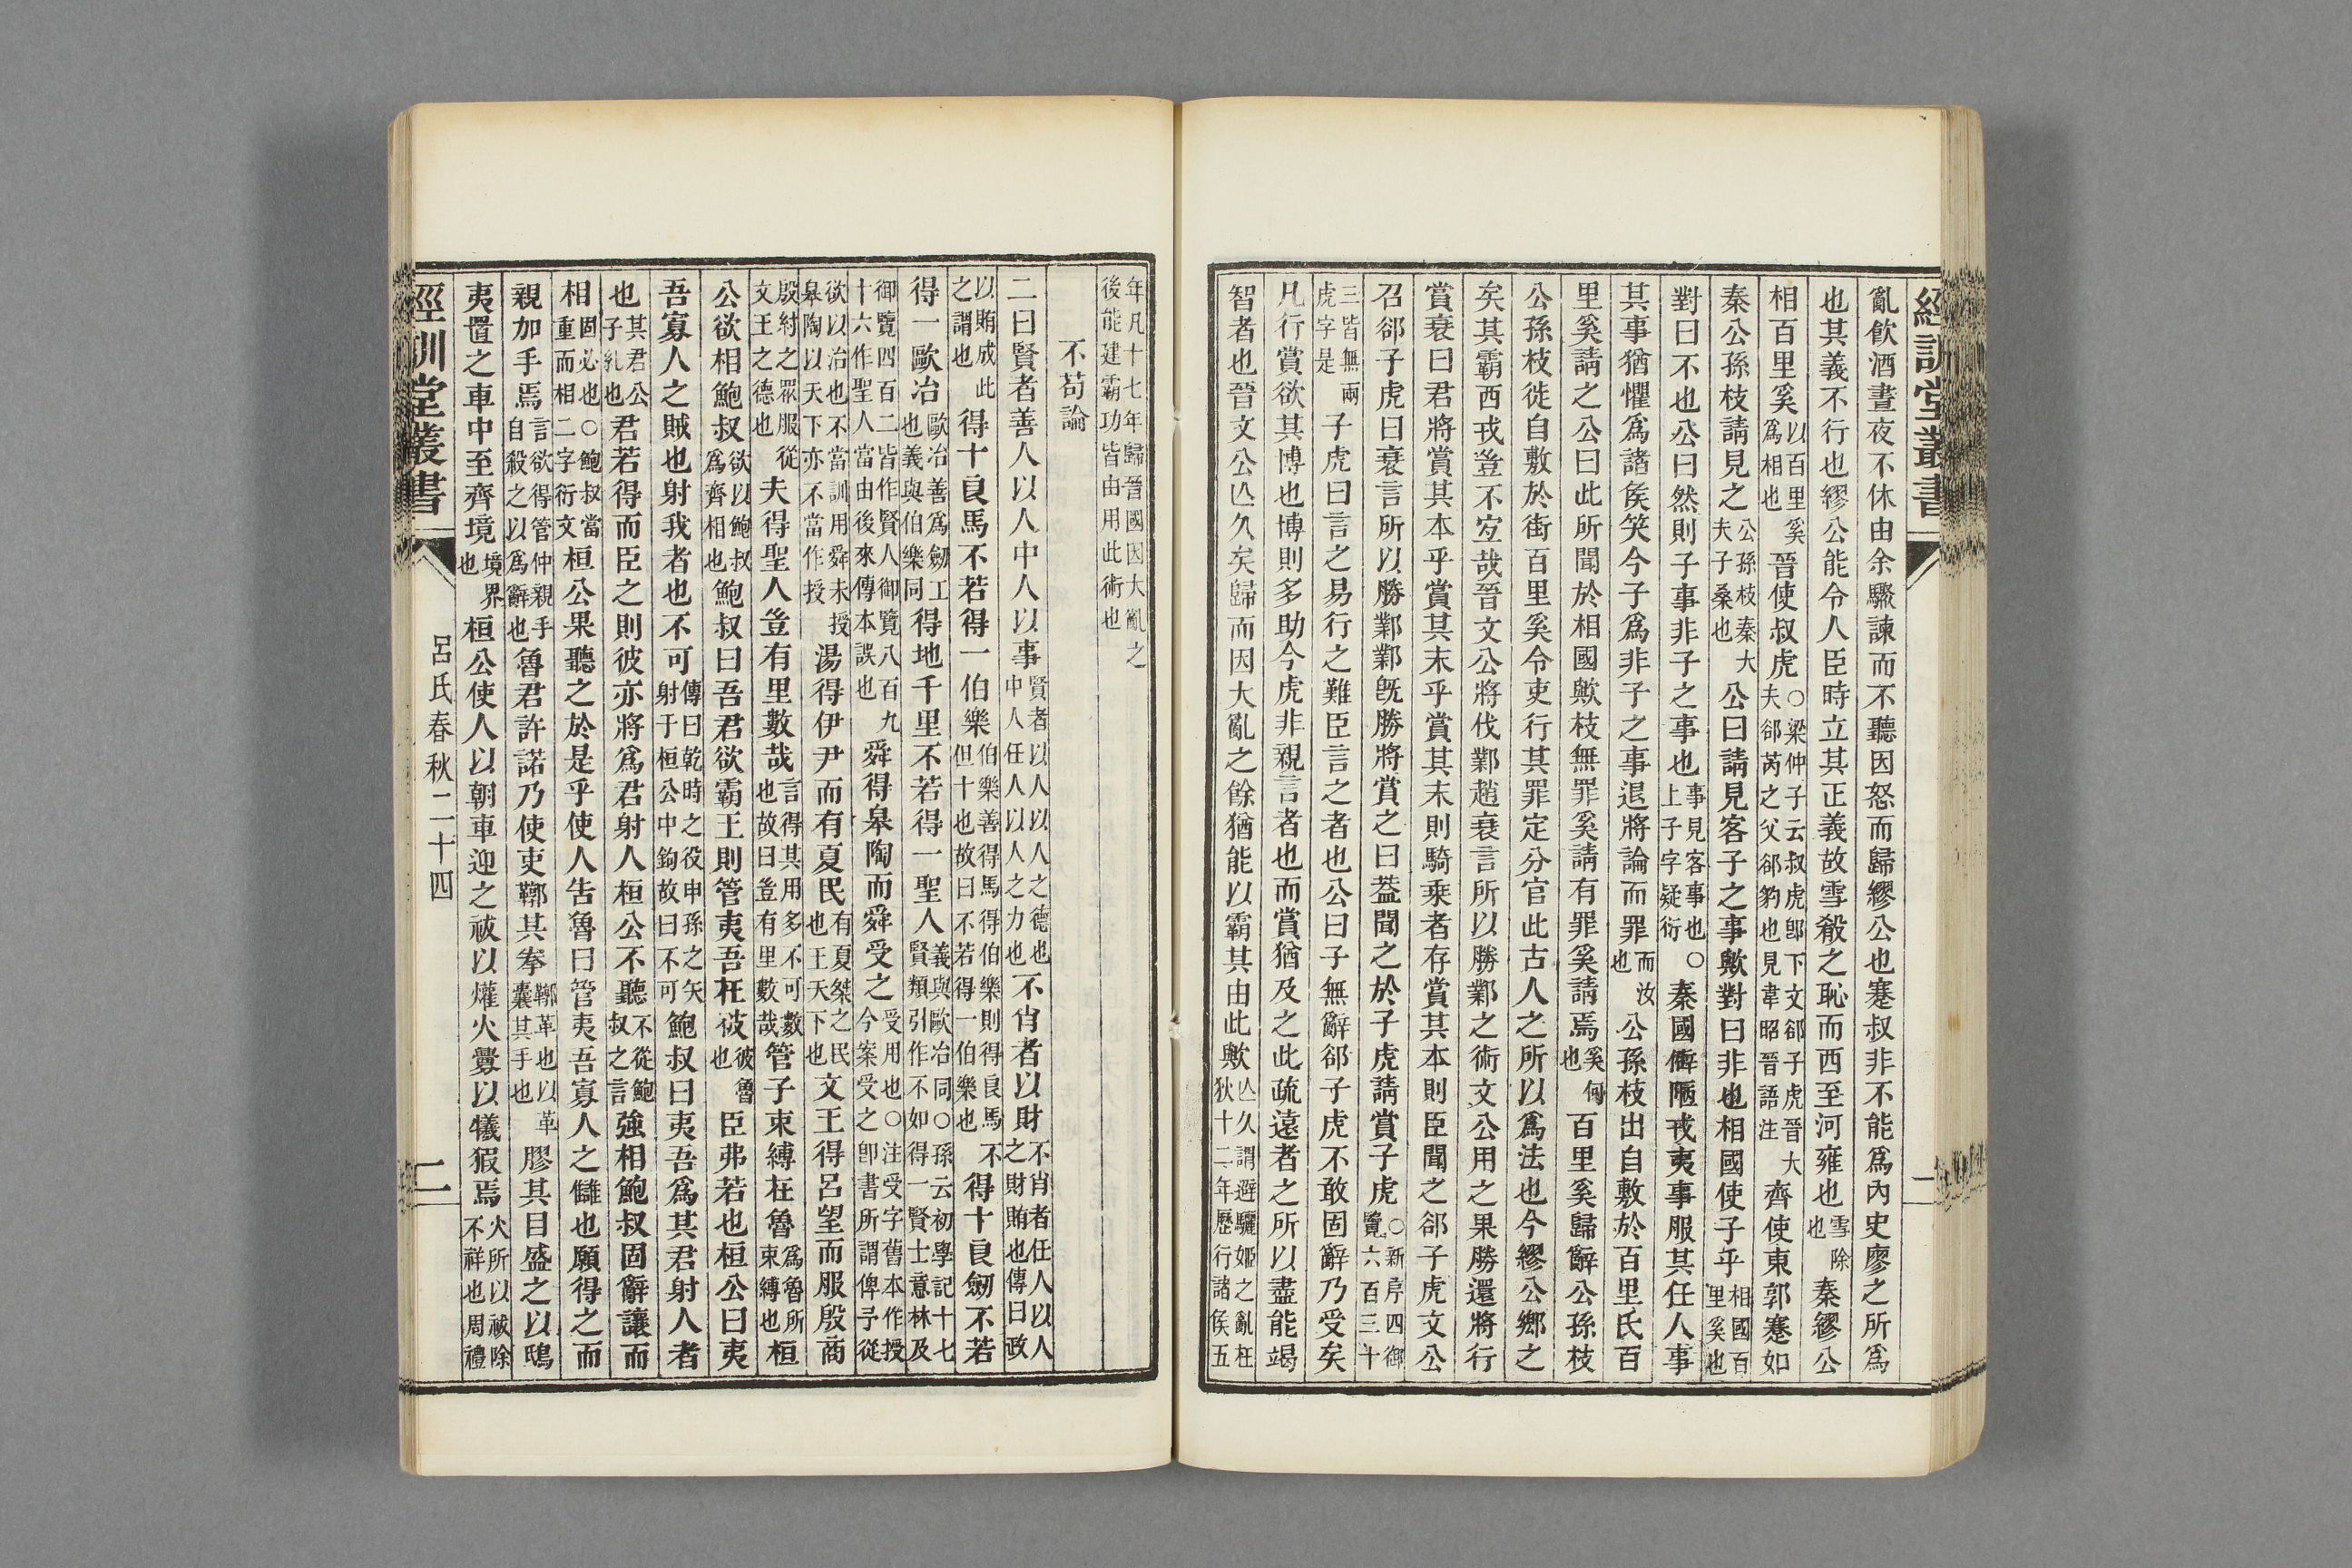 經訓堂叢書
亂飲酒晝夜不休由余驟諫而不聽因怒而歸繆公也蹇叔非不能爲內史廖之所爲
也其義不行也繆公能令人臣時立其正義故雪殽之恥而西至河雍也雪除也秦繆公
相百里奚以百里奚爲相也晉使叔虎○梁仲子云叔虎卽下文郤子虎晉大夫郤芮之父郤豹也見韋昭晉語注齊使東郭蹇如
秦公孫枝請見之公孫枝秦大夫子桑也公曰請見客子之事歟對曰非也相國使子乎相國百里奚也
對曰不也公曰然則子事非子之事也事見客事也○上子字疑衍秦國僻陋戎夷事服其任人事
其事猶懼爲諸矦笑今子爲非子之事退將論而罪而汝也公孫枝出自敷於百里氏百
里奚請之公曰此所聞於相國歟枝無罪奚請有罪奚請焉奚何也百里奚歸辭公孫枝
公孫枝徙自敷於街百里奚令吏行其罪定分官此古人之所以爲法也今繆公鄉之
矣其霸西戎豈不宐哉晉文公將伐鄴趙衰言所以勝鄴之術文公用之果勝還將行
賞衰曰君將賞其本乎賞其末乎賞其末則騎乘者存賞其本則臣聞之郤子虎文公
召郤子虎曰衰言所以勝鄴鄴旣勝將賞之曰葢聞之於子虎請賞子虎○新序四御覽六百三十
三皆無兩虎字是子虎曰言之易行之難臣言之者也公曰子無辭郤子虎不敢固辭乃受矣
凡行賞欲其博也博則多助今虎非親言者也而賞猶及之此疏遠者之所以盡能竭
智者也晉文公亾久矣歸而因大亂之餘猶能以霸其由此歟亾久謂避驪姬之亂在狄十二年歷行諸矦五
年凡十七年歸晉國因大亂之後能建霸功皆由用此術也
不苟論
二曰賢者善人以人中人以事賢者以人以人之德也中人任人以人之力也不肖者以財不肖者任人以人之財賄也傳曰政
以賄成此之謂也得十良馬不若得一伯樂伯樂善得馬得伯樂則得良馬不但十也故曰不若得一伯樂也得十良劒不若
得一歐冶歐冶善爲劒工也義與伯樂同得地千里不若得一聖人義與歐冶同○孫云初學記十七賢類引作不如得一賢士意林及
御覽四百二皆作賢人御覽八百九十六作聖人當由後來傳本誤也舜得皋陶而舜受之受用也○注受字舊本作授今案受之卽書所謂俾予從
欲以治也不當訓用舜未授皋陶以天下亦不當作授湯得伊尹而有夏民有夏桀之民也王天下也文王得呂望而服殷商
殷紂之眾服從文王之德也夫得聖人豈有里數哉言得其用多不可數也故曰豈有里數哉管子束縛在魯爲魯所束縛也桓
公欲相鮑叔欲以鮑叔爲齊相也鮑叔曰吾君欲霸王則管夷吾在彼彼魯也臣弗若也桓公曰夷
吾寡人之賊也射我者也不可傳曰乾時之役申孫之矢射于桓公中鉤故曰不可鮑叔曰夷吾爲其君射人者
也其君公子糺也君若得而臣之則彼亦將爲君射人桓公不聽不從鮑叔之言強相鮑叔固辭讓而
相固必也○鮑叔當重而相二字衍文桓公果聽之於是乎使人告魯曰管夷吾寡人之讎也願得之而
親加手焉言欲得管仲親手自殺之以爲辭也魯君許諾乃使吏鞹其拳鞹革也以革囊其手也膠其目盛之以鴟
夷置之車中至齊境境界也桓公使人以朝車迎之祓以爟火釁以犧猳焉火所以祓除不祥也周禮
經訓堂叢書
呂氏春秋二十四
二